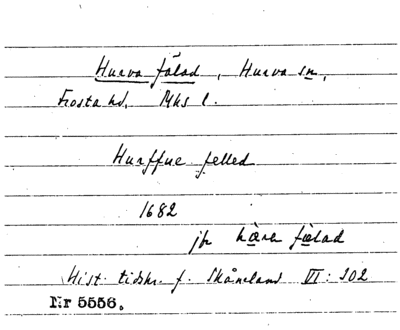 Hurva fälad, Hurva sn,
Frosta hd, Mhs l.
Hurffue felled
1682
jfr fælad
Hist. tidskr. f. Skåneland VI: 102
Nr 5556.